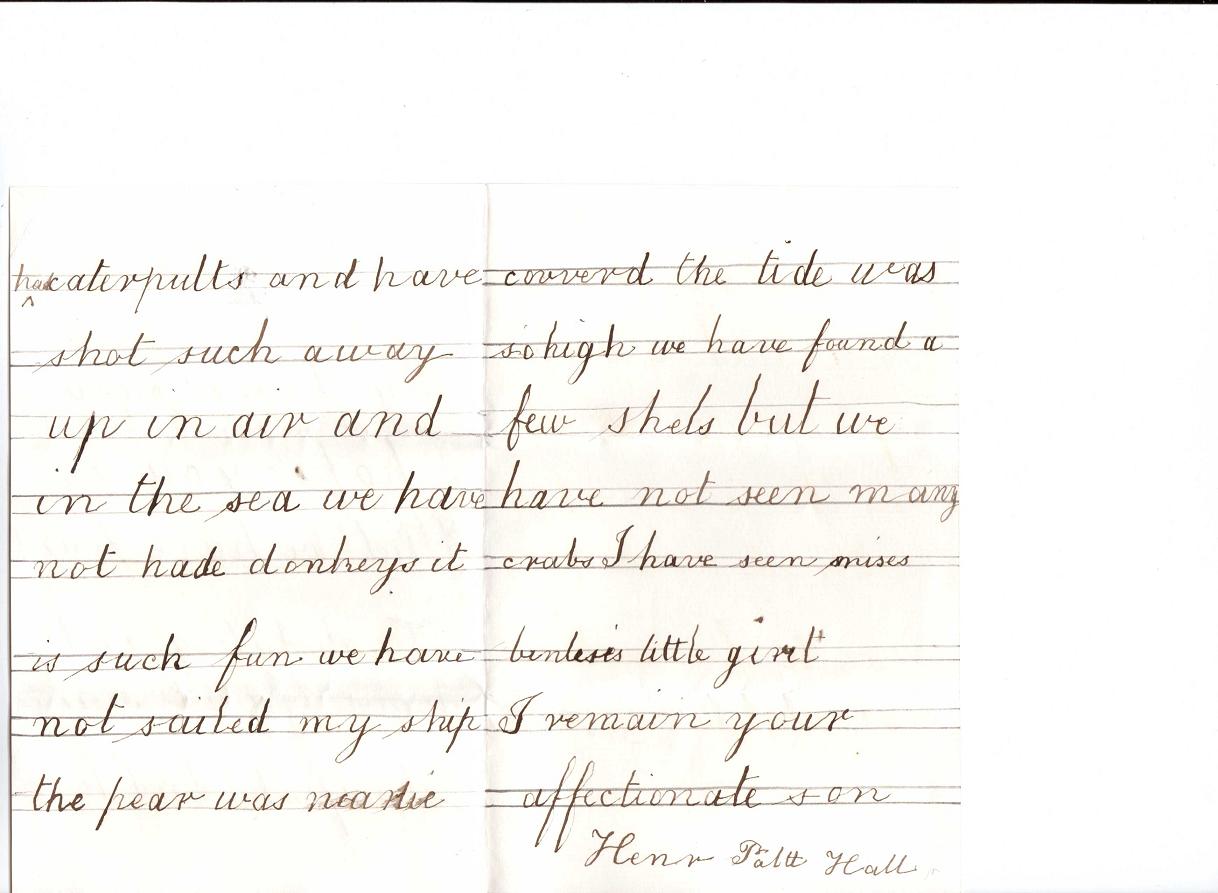 had caterpults and have
shot such away
up in air and
in the sea we have
not hade donkeys it
is such fun we have
not sailed my ship
the pear was
covverd the tide was
so high we have found a
few shels but we
have not seen many
crabs I have seen mises
little girl
I remain your
affectionate son
Henr Platt Hall